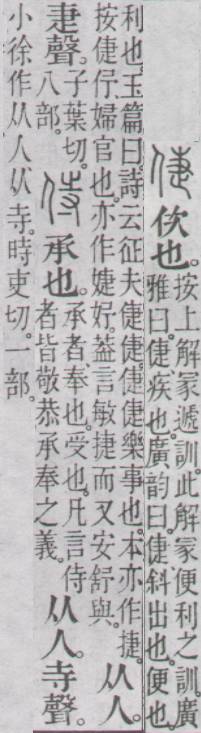 倢佽也。按上解冡遞訓。此解冡便利之訓。廣
雅曰。倢、疾也。廣韵曰。倢、斜出也。便也。
利也。玉篇曰。詩云征夫倢倢。倢倢、樂事也。本亦作捷。
按倢伃婦官也。亦作婕妤。葢言敏捷而又安舒與。从人。
疌聲。子葉切。
八部。
侍承也。承者、奉也。受也。凡言侍
者皆敬恭承奉之義。从人。寺聲。
小徐作从人从寺。時吏切。一部。